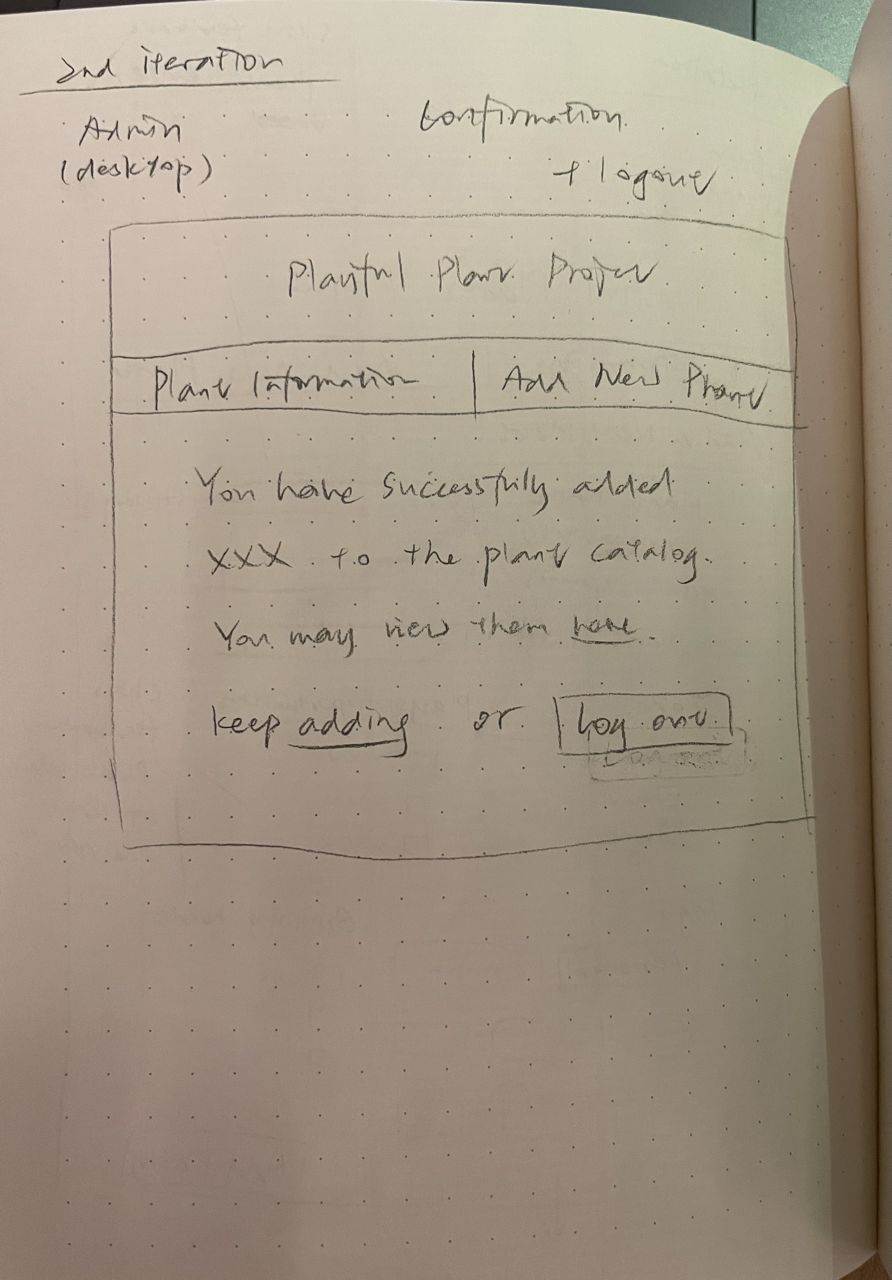 2nd iteration
Admin
(desktop)
Confirmation
+ logout
Playful Plant Project
Plant Information | Add New Plant
You have successfully added
XXX to the plant catalog.
You may view them here.
keep adding or Log out